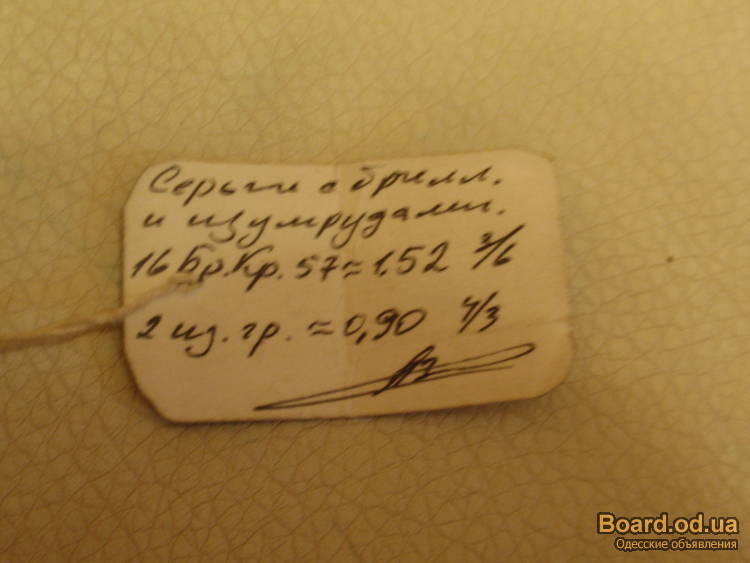 Серьги с брилл.
и изумрудами.
16 Бр.Кр.57≈1,52 3/6
2 из. гр. ≈ 0,90 4/3
Board.od.ua
Одесские объявления